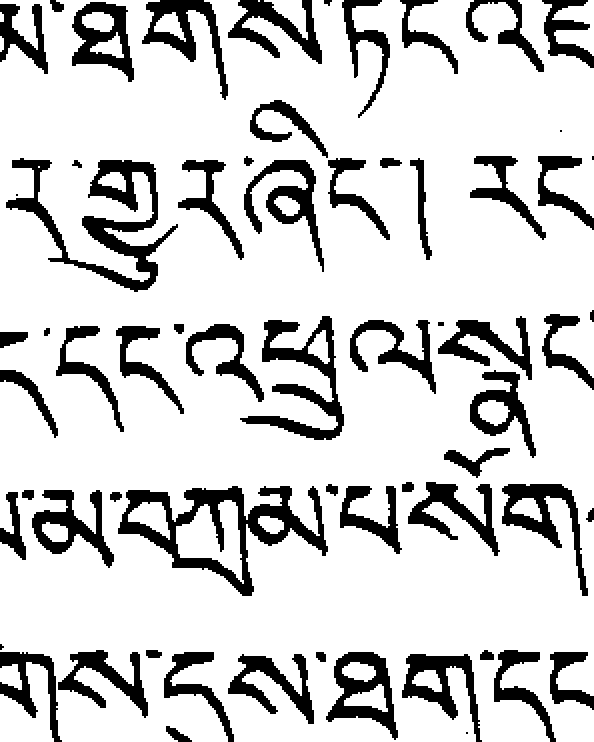 མ་ཐགས་ཏང་འ
ར་གྱུར་ཞིང་། རང
ང་དང་འཕྲུལ་སྣང
མ་བཀྲམ་པ་སོག
གས་དུས་ཐག་དང